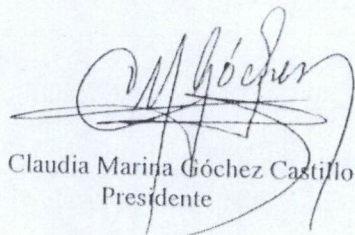 CMGóchez
Claudia Marina Góchez Castillo
Presidente